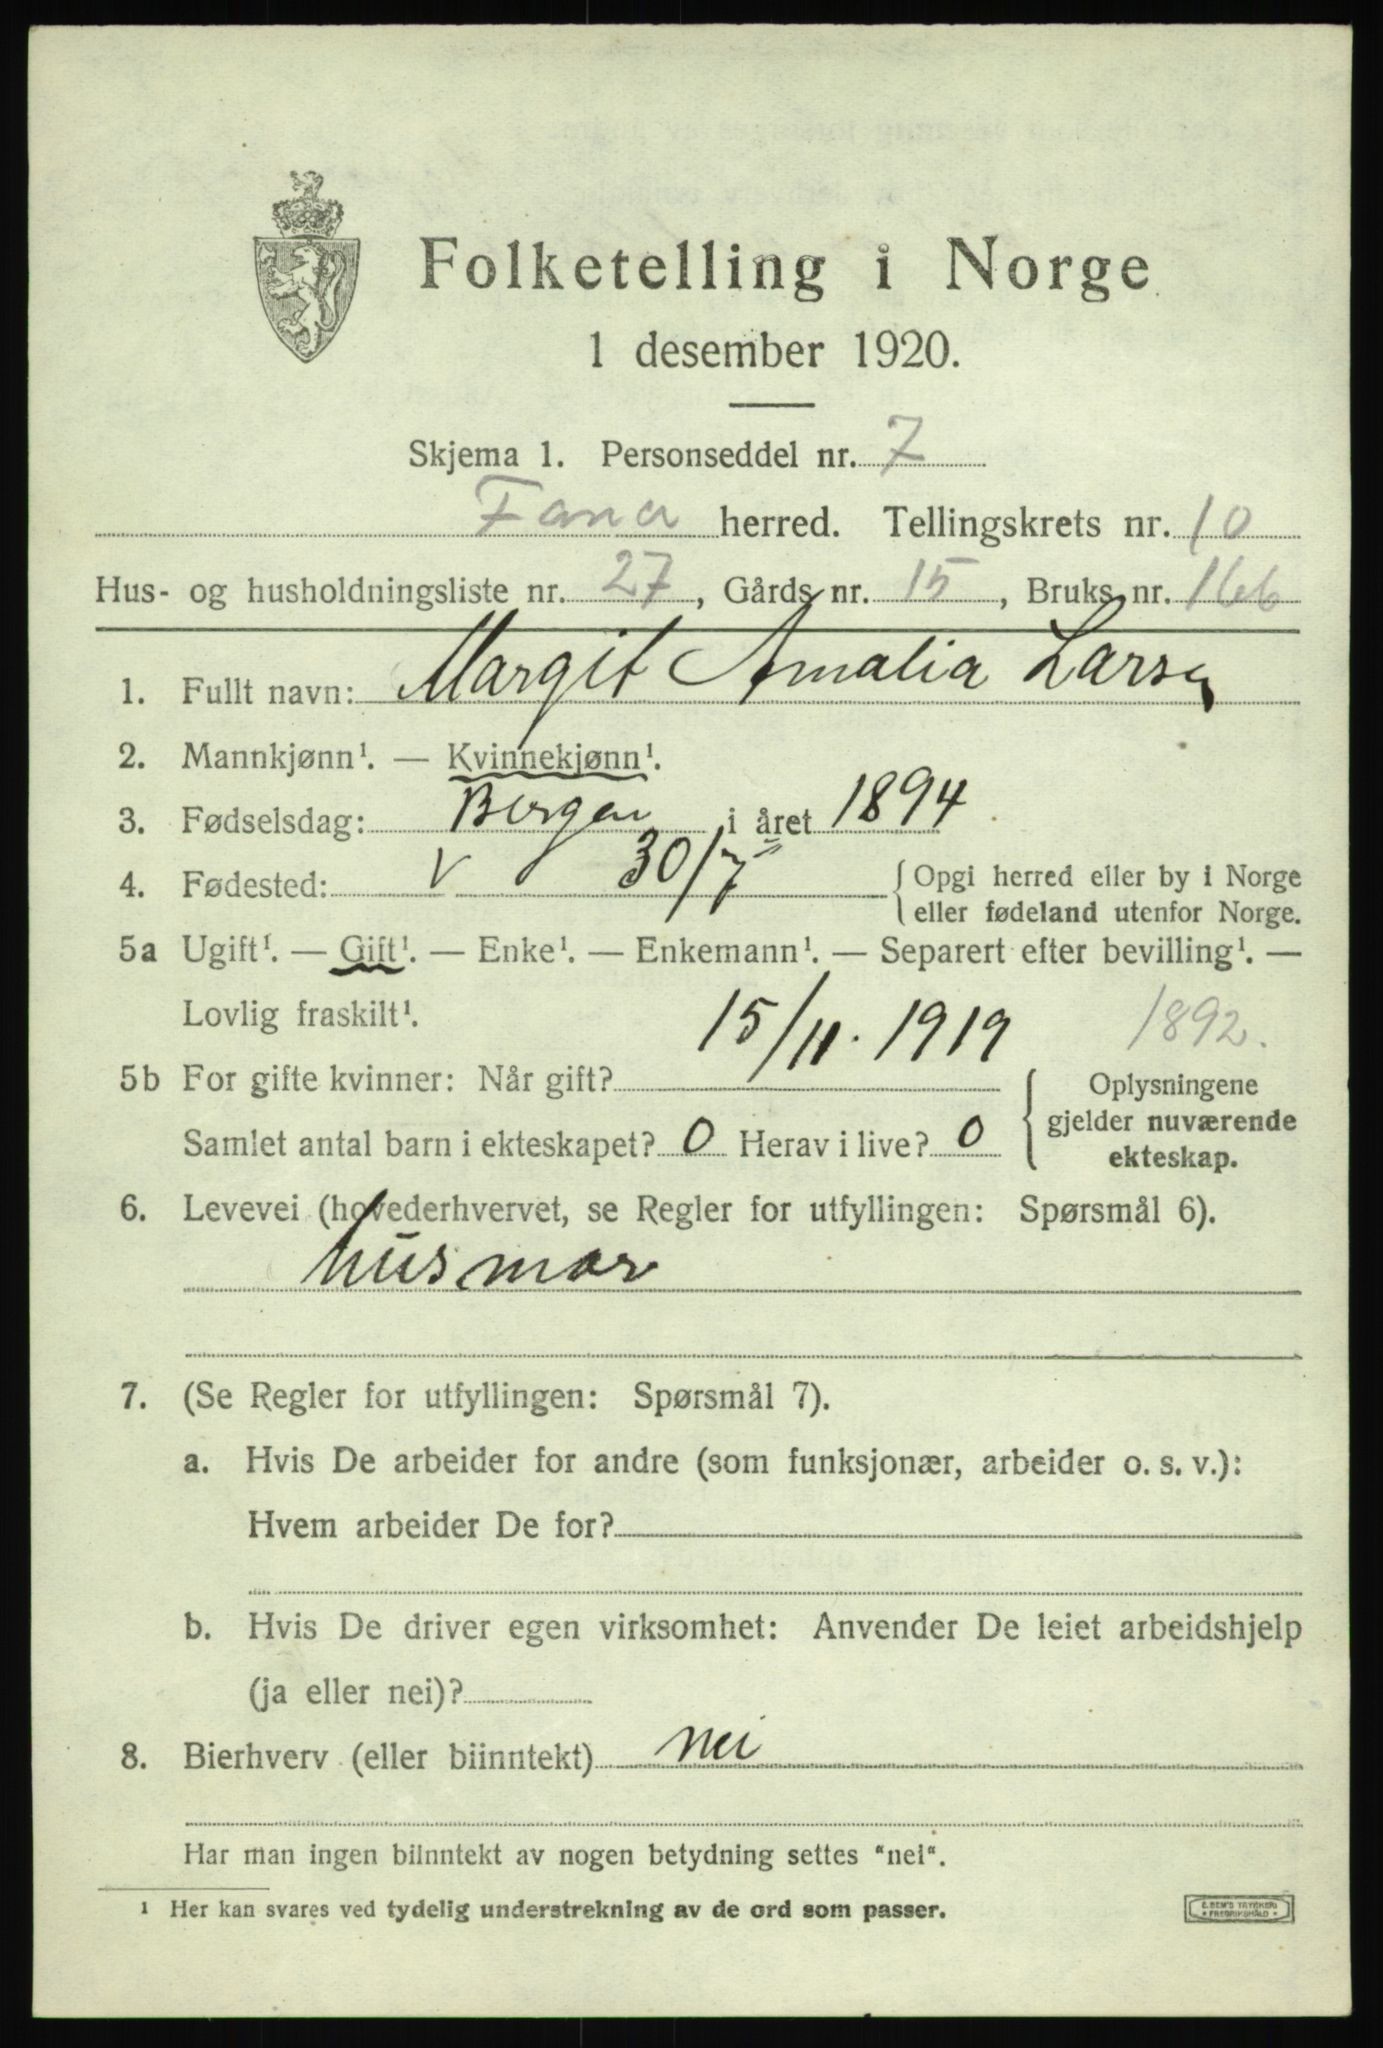 Folketelling i Norge
1 desember 1920.
Skjema 1. Personseddel nr. 7
Fana herred. Tellingskrets nr. 10
Hus- og husholdningsliste nr. 27, Gårds nr. 15, Bruks nr. 166
1. Fullt navn: Margit Amalia Larsen
2. Mannkjønn¹. — Kvinnekjønn¹.
3. Fødselsdag: Bergen i året 1894
4. Fødested: V 30/7 { Opgi herred eller by i Norge
eller fødeland utenfor Norge.
5a Ugift¹. — Gift¹. — Enke¹. — Enkemann¹. — Separert efter bevilling¹. —
Lovlig fraskilt¹. 1892.
5b For gifte kvinner: Når gift? 15/11. 1919
Samlet antal barn i ekteskapet? 0 Herav i live? 0
{ Oplysningene
gjelder nuværende
ekteskap.
6. Levevei (hovederhvervet, se Regler for utfyllingen: Spørsmål 6).
husmor
7. (Se Regler for utfyllingen: Spørsmål 7).
a. Hvis De arbeider for andre (som funksjonær, arbeider o. s. v.):
Hvem arbeider De for?
b. Hvis De driver egen virksomhet: Anvender De leiet arbeidshjelp
(ja eller nei)?
8. Bierhverv (eller biinntekt) nei
Har man ingen biinntekt av nogen betydning settes "nei".
¹ Her kan svares ved tydelig understrekning av de ord som passer.
E. SEM'S TRYKKERI
FREDRIKSHALD